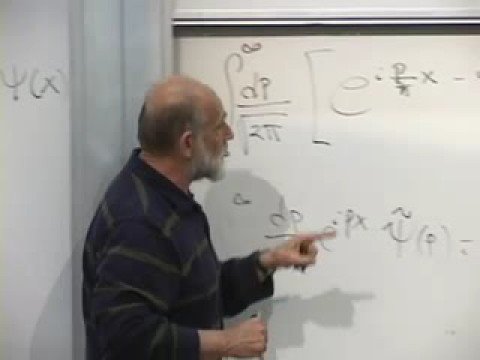 ψ(x)
∫^∞ dp/√2π [ e^{i p/ħ x} -
∞ dp e^{ipx} ψ̃(p) =